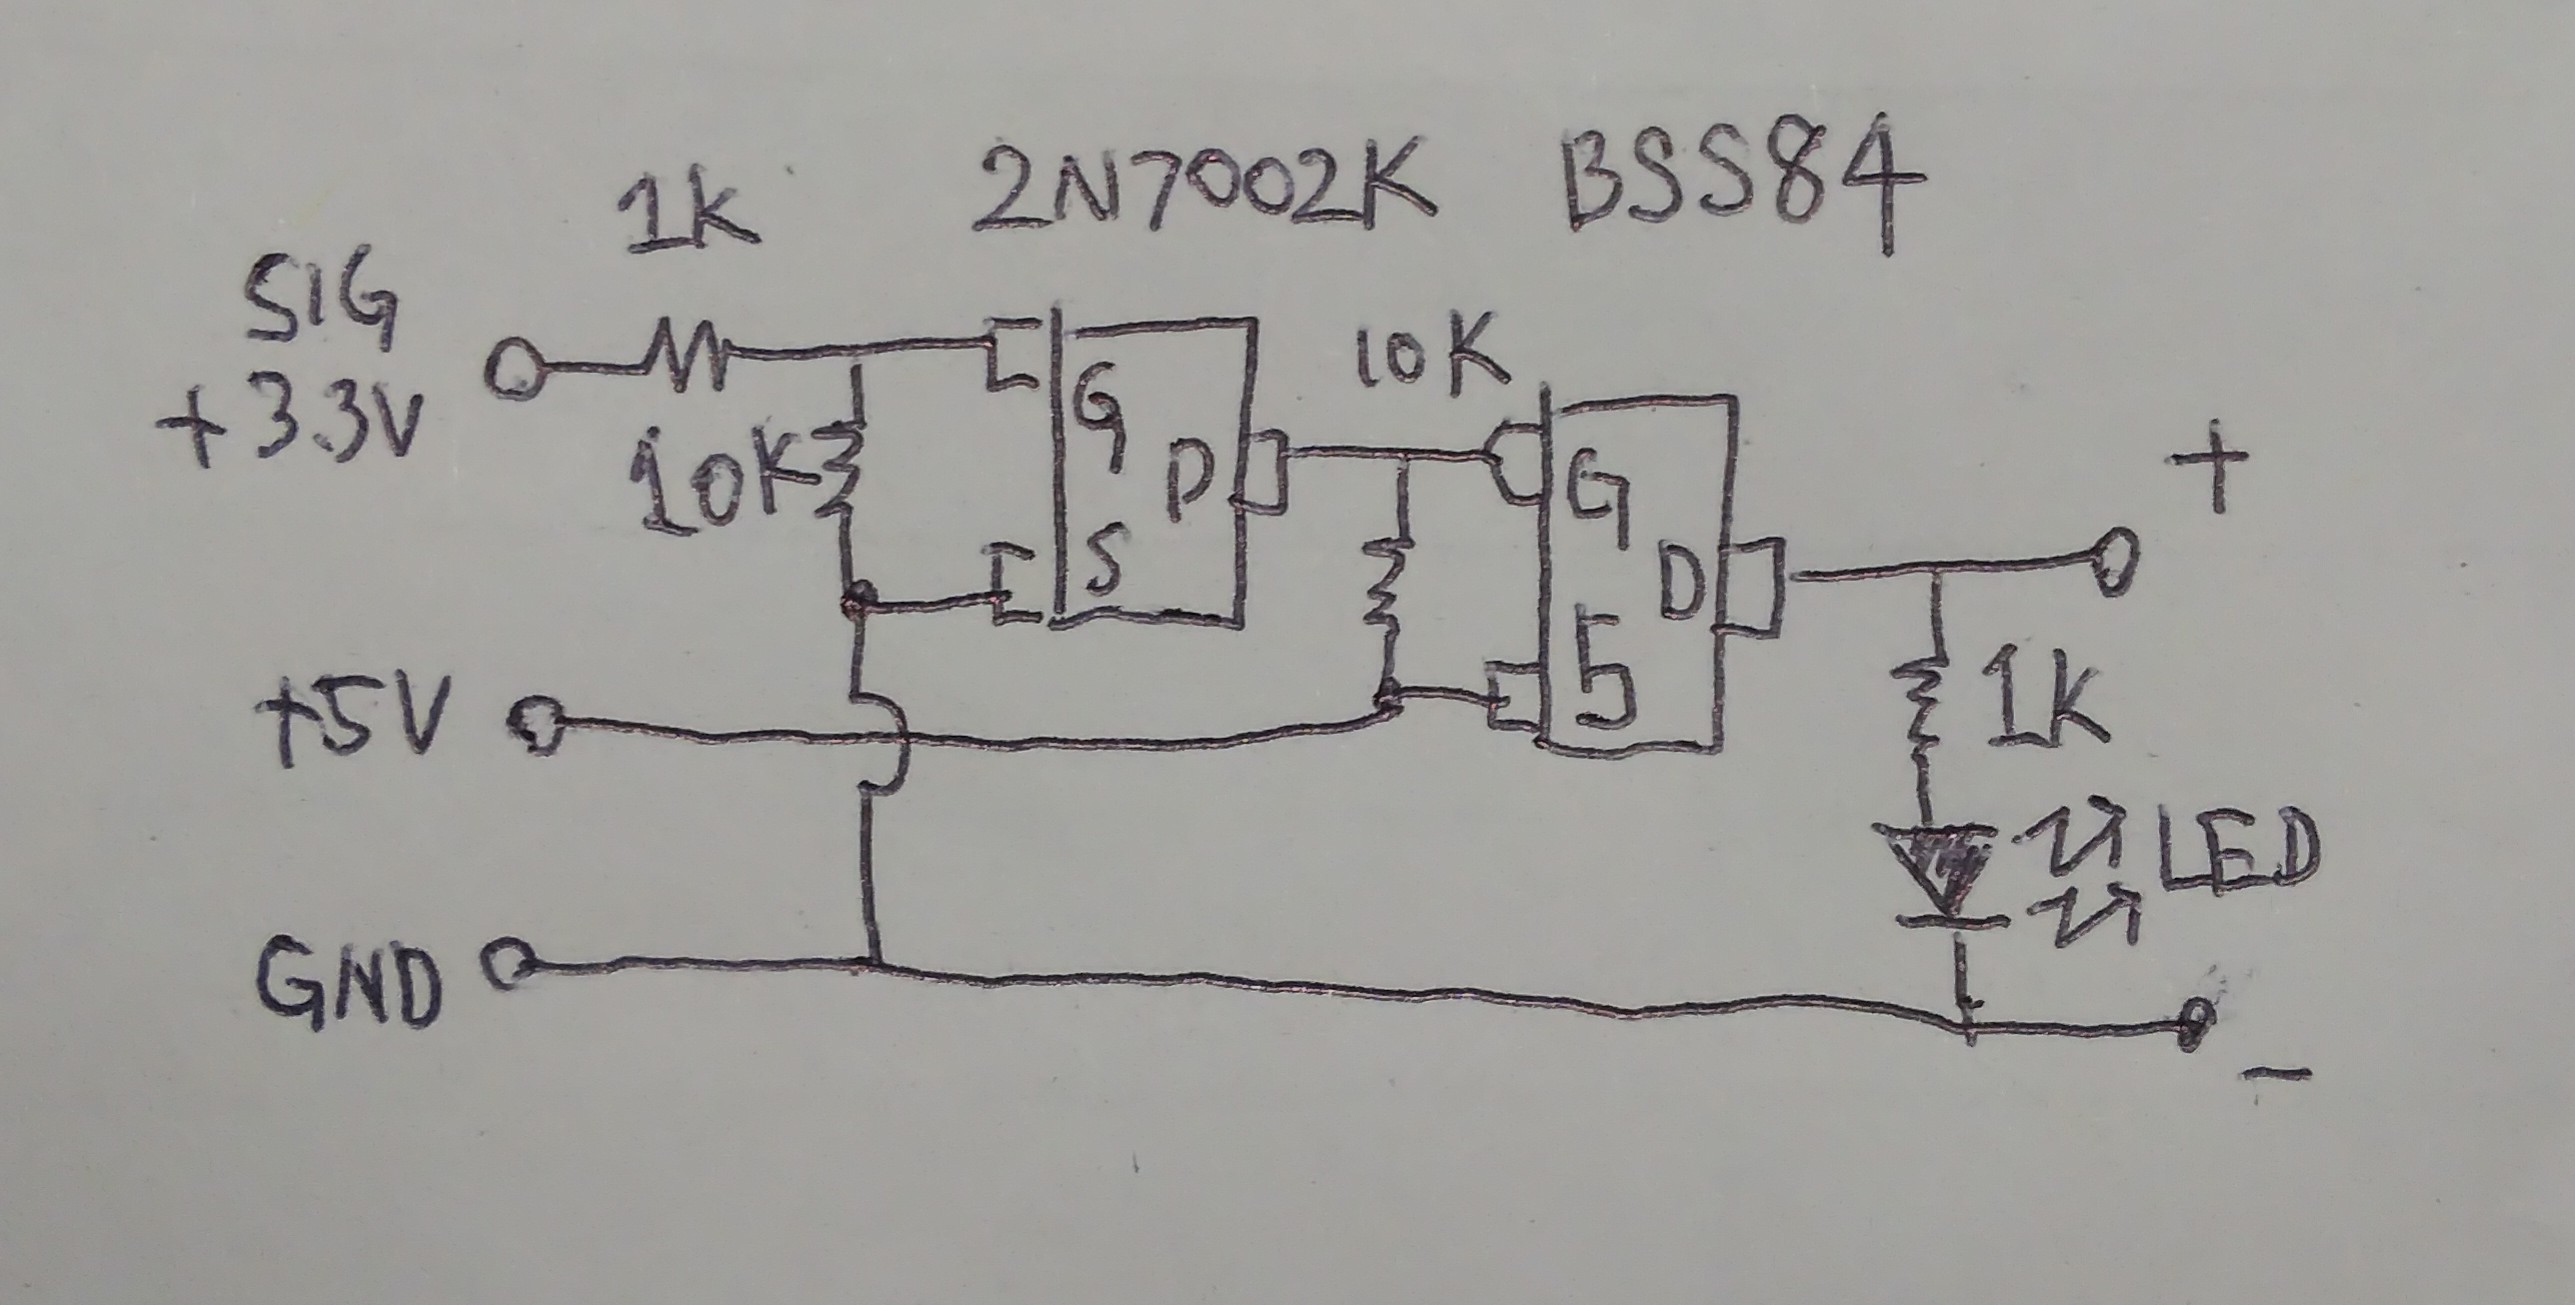 1K
2N7002K
BSS84
SIG
+3.3V
10K
G
D
S
10K
G
D
S
+
+5V
1K
LED
GND
-